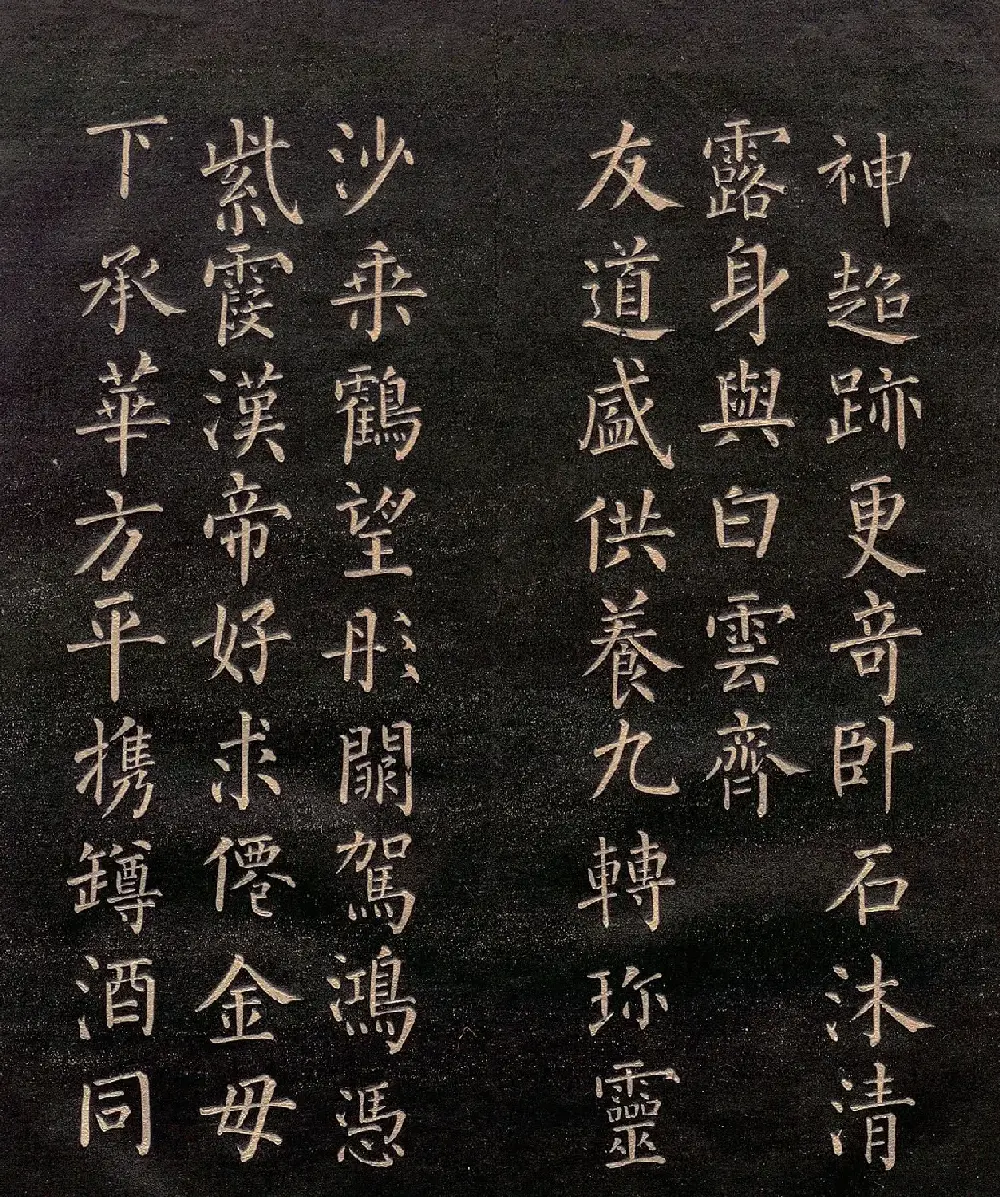 神超跡更竒卧石沐清
露身與白雲齊
友道盛供養九轉珎靈
沙乗鸖望彤闕駕鴻憑
紫霞漢帝好求僊金毋
下承華方平携罇酒同